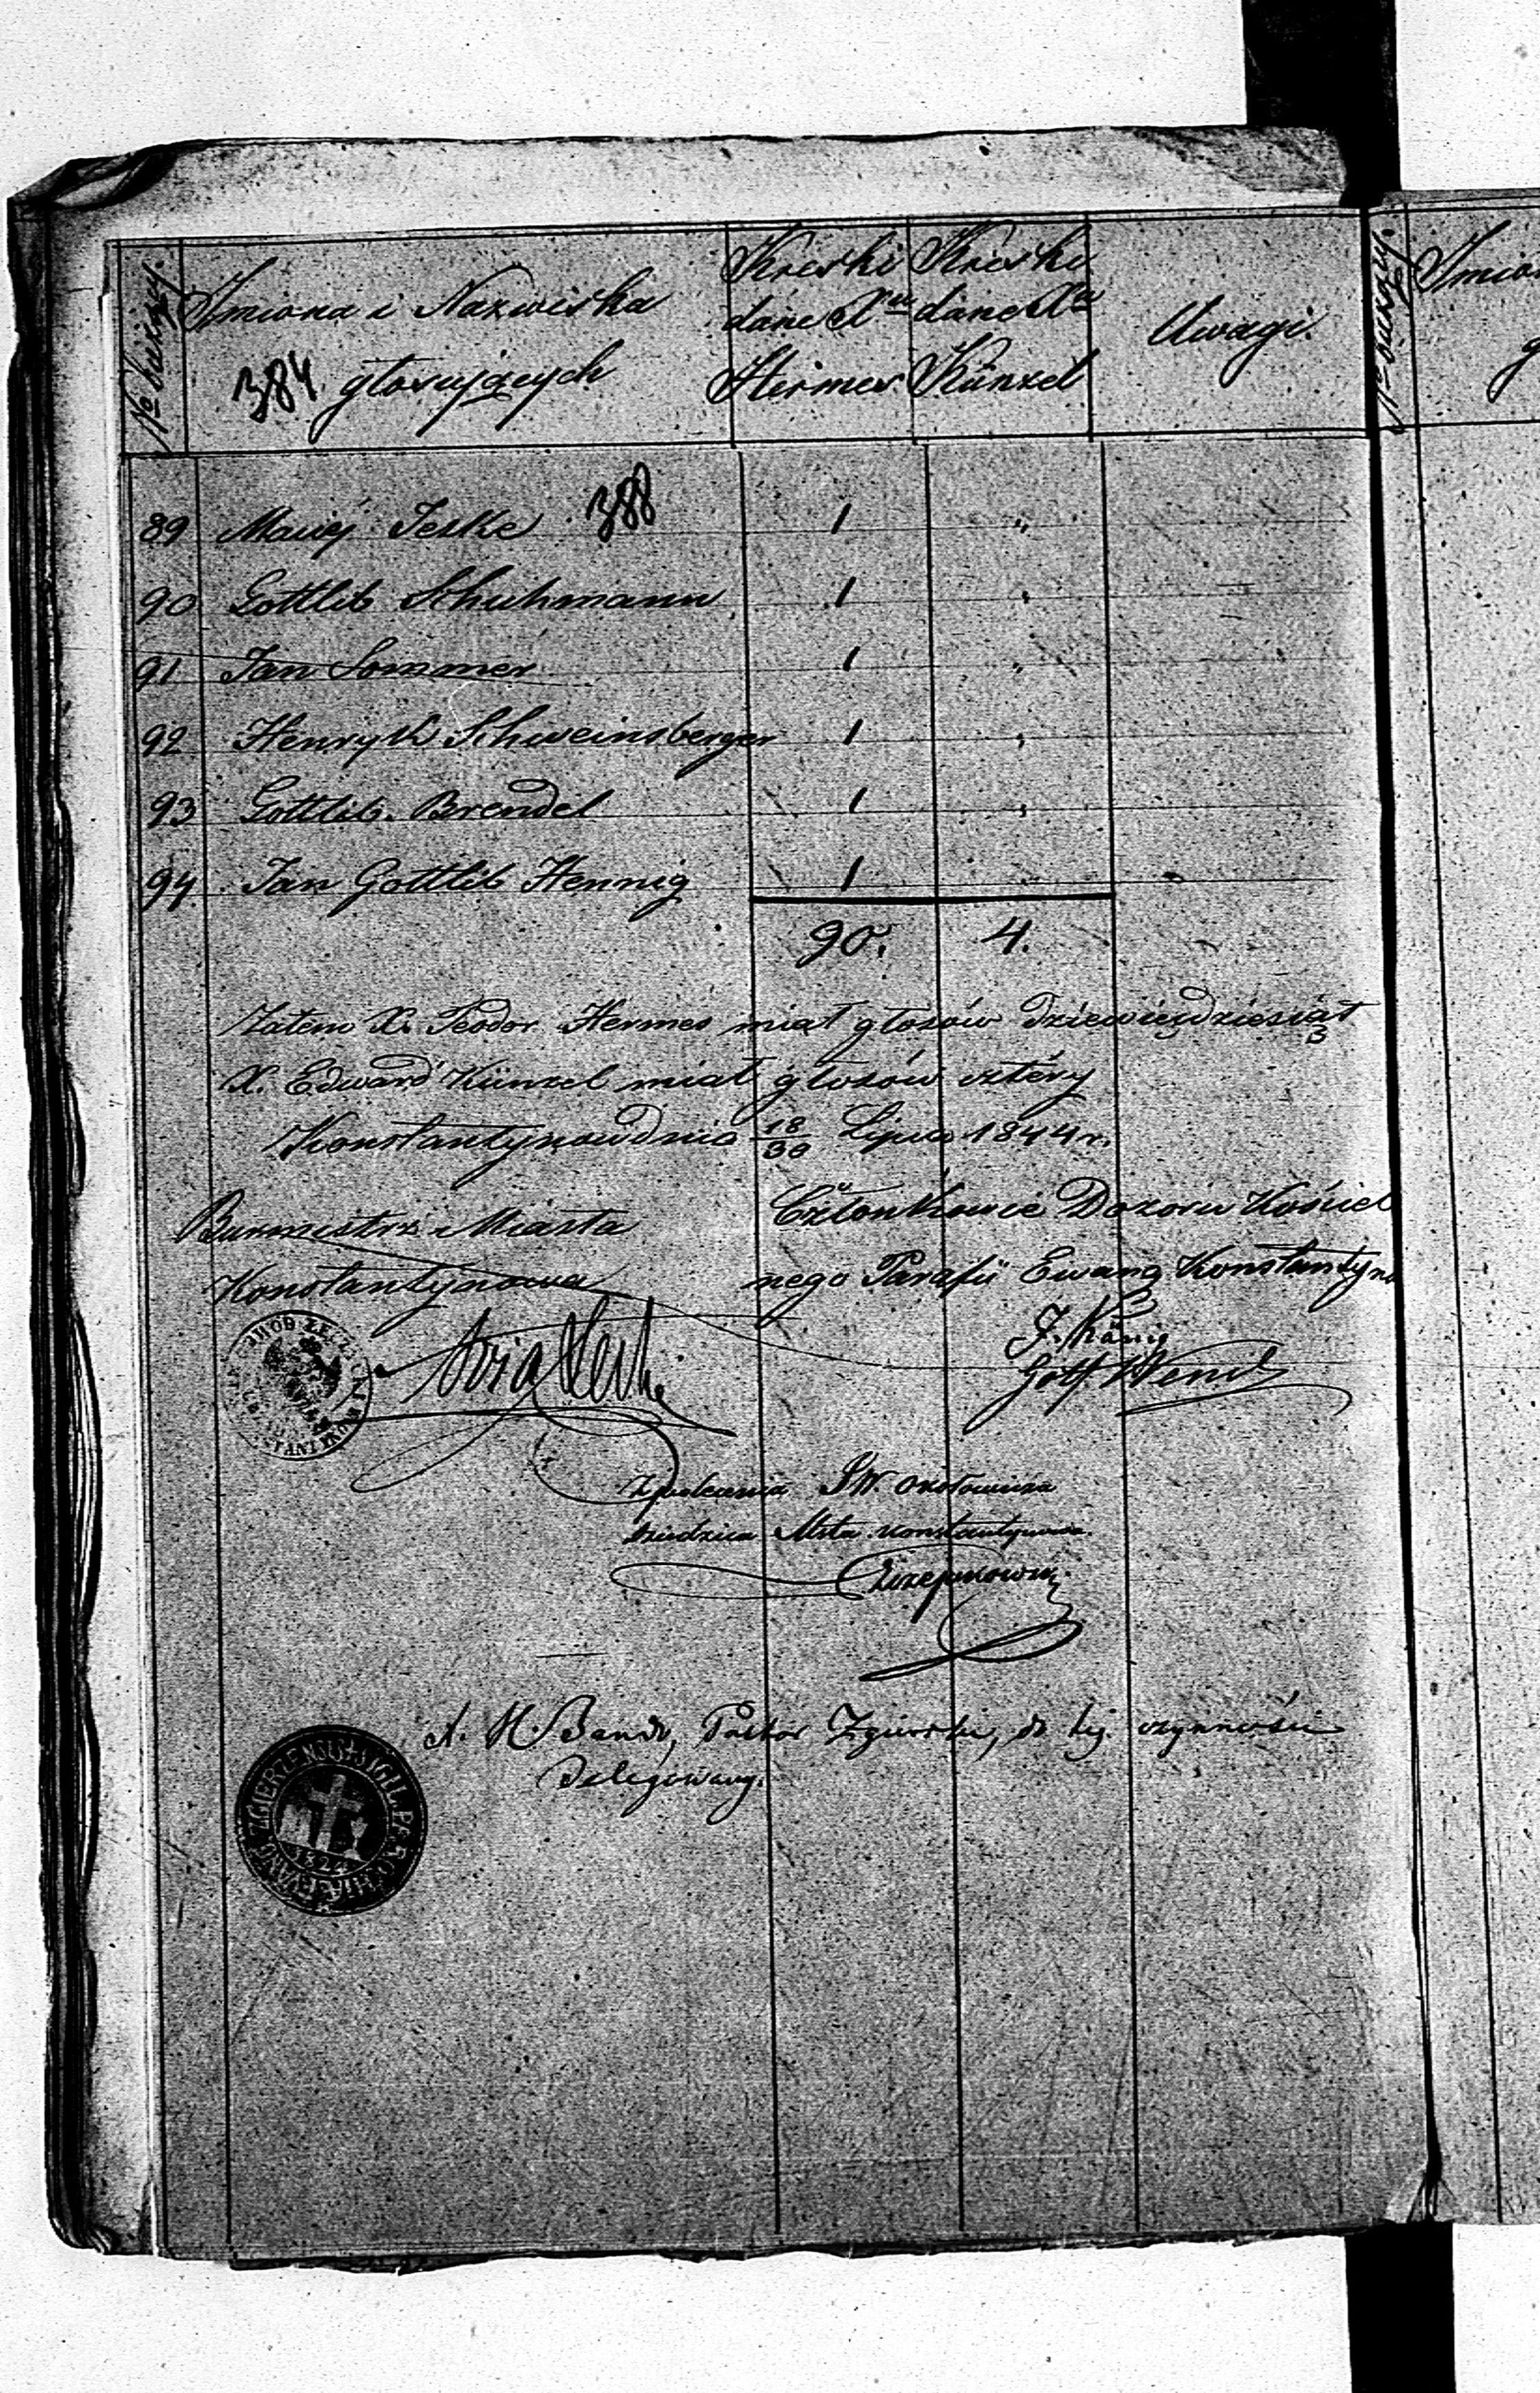 No bieżący.
Imiona i Nazwiska
384. głosujących
Kreski
dane Xu
Hermes
Kreski
dane Xu
Künzel
Uwagi.
388
89 Maciej Jeske 1 "
90 Gottlib Schuhmann 1 "
91 Jan Sommer 1 "
92 Henryk Schweinsberger 1 "
93 Gottlib Brendel 1 "
94. Jan Gottlib Hennig 1 "
90. 4.
Zatem X. Teodor Hermes miał głosów dziewięćdziesiąt
X. Edward Künzel miał głosów cztéry
Konstantynow dnia 18/30 Lipca 1844 r.
Burmistrz Miasta
Konstantynowa
Członkowie Dozoru Kościel
nego Parafii Ewang Konstantyno
J. König
Gott.
Z polecenia JW. Okołowicza
Dziedzica Msta Konstantynowa
X. H. Bando, Pastor Zgierski, do tej czynności
Delegowany.
No bieżący.
Imion
g